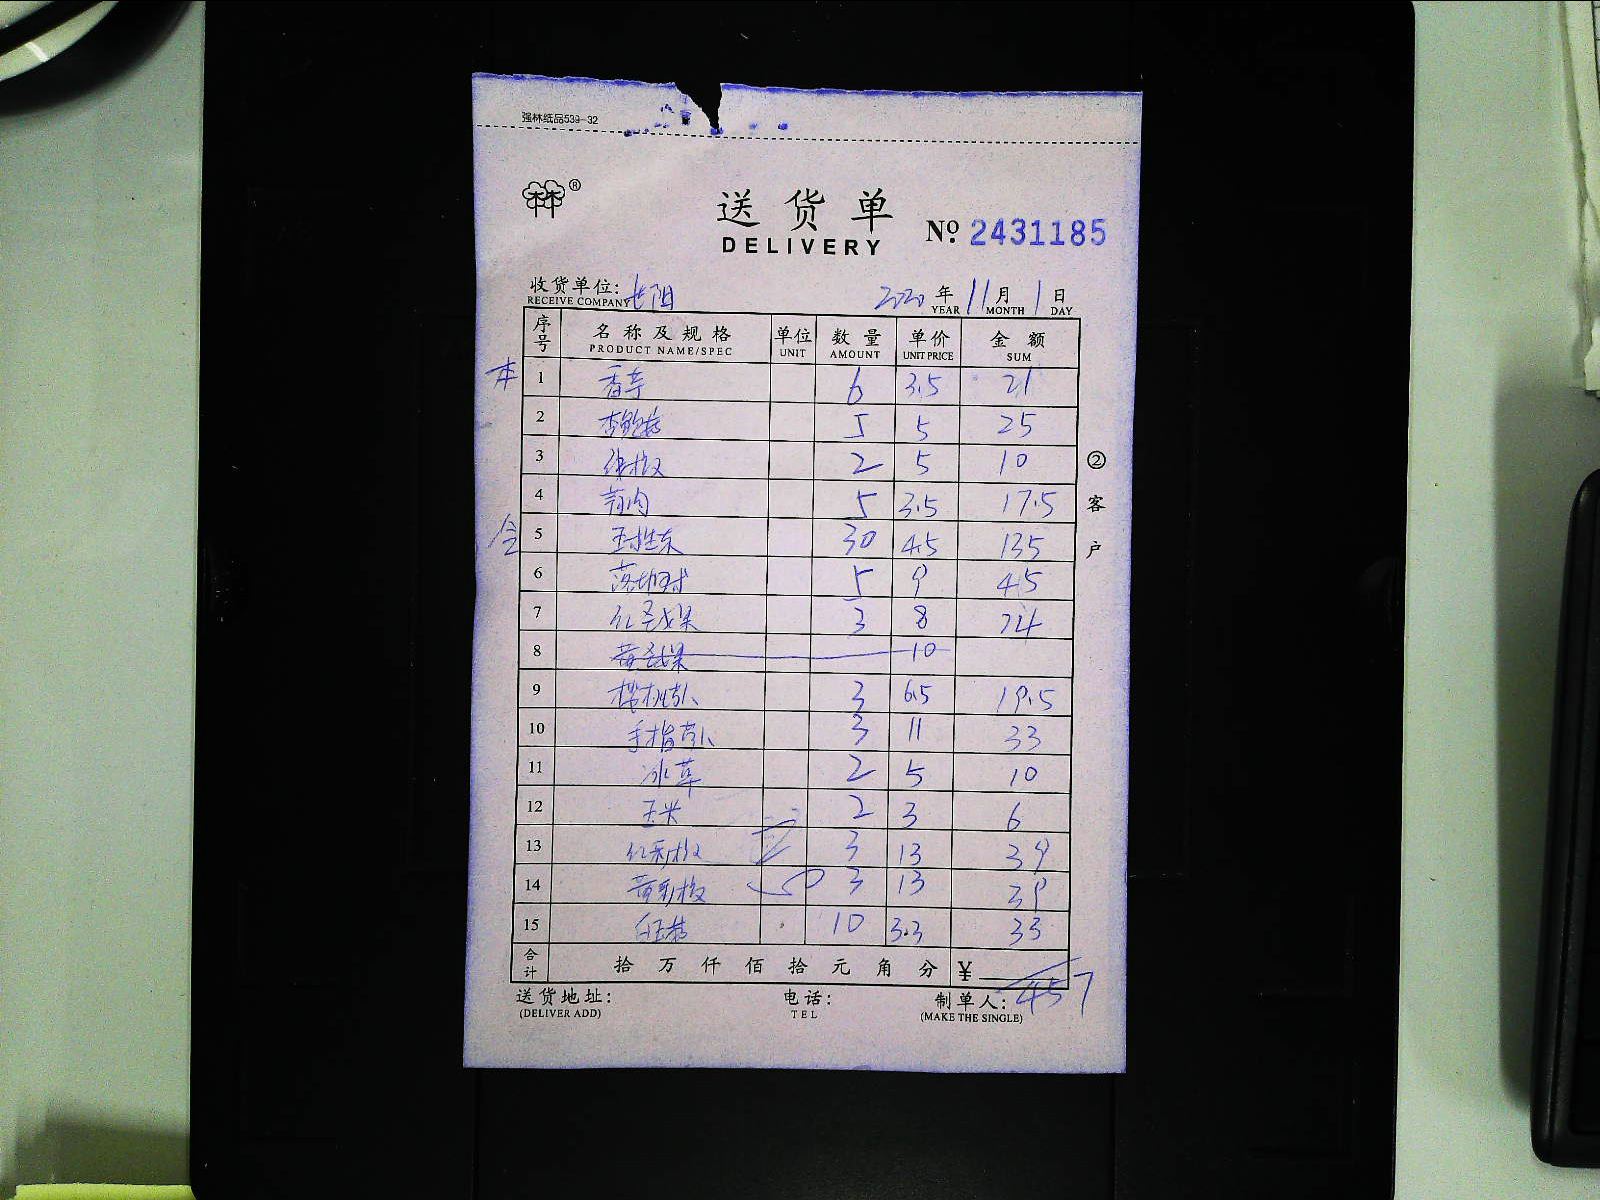 强林纸品539-32
林林®
送货单
DELIVERY
№ 2431185
收货单位: 长阳 2020年11月1日
RECEIVE COMPANY YEAR MONTH DAY
序号 名称及规格 单位 数量 单价 金额
PRODUCT NAME/SPEC UNIT AMOUNT UNIT PRICE SUM
本 1 香芹 6 3.5 21
2 杏鲍菇 5 5 25
3 5 2 10
4 5 3.5 17.5
5 30 4.5 135
6 5 9 45
7 红圣女果 3 8 24
8 黄圣女果 10
9 3 6.5 19.5
10 手指 3 11 33
11 冰草 2 5 10
12 玉米 2 3 6
13 红彩椒 3 13 39
14 黄彩椒 3 13 39
15 白玉菇 10 3.3 33
合计 拾万仟佰拾元角分 ¥ 457
送货地址: 电话: 制单人:
(DELIVER ADD) TEL (MAKE THE SINGLE)
②客户